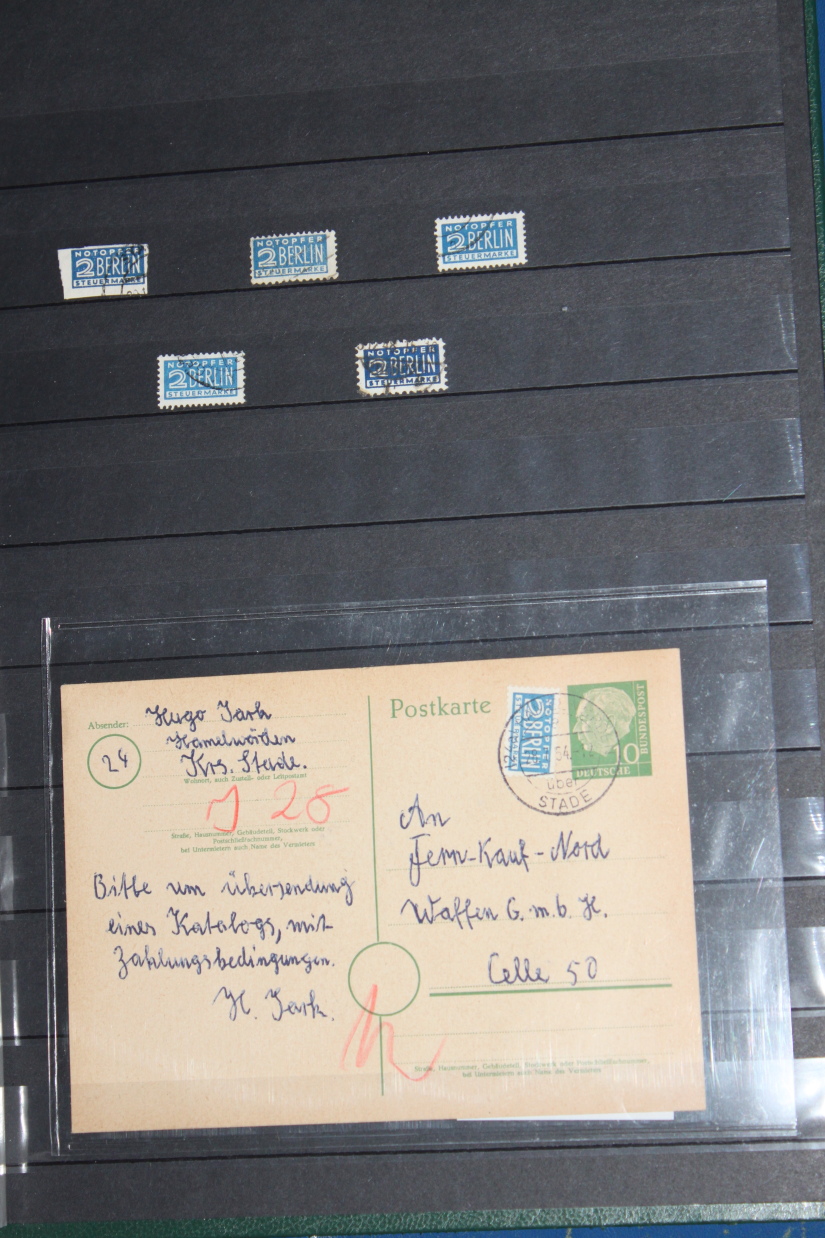 NOTOPFER
2 BERLIN
STEUERMARKE
NOTOPFER
2 BERLIN
STEUERMARKE
NOTOPFER
2 BERLIN
STEUERMARKE
NOTOPFER
2 BERLIN
STEUERMARKE
NOTOPFER
2 BERLIN
STEUERMARKE
Absender: Hugo Jark
Hamelwörden
24
Krs. Stade.
Wohnort, auch Zustell- oder Leitpostamt
J 25
Straße, Hausnummer, Gebäudeteil, Stockwerk oder
Postschließfachnummer,
bei Untermietern auch Name des Vermieters
Bitte um übersendung
eines Katalogs, mit
Zahlungsbedingungen.
H. Jark.
Postkarte
NOTOPFER
2 BERLIN
STEUERMARKE
54
über
STADE
10
DEUTSCHE
BUNDESPOST
An
Fern-Kauf-Nord
Waffen G.m.b.H.
Celle 50
Straße, Hausnummer, Gebäudeteil, Stockwerk oder Postschließfachnummer,
bei Untermietern auch Name des Vermieters